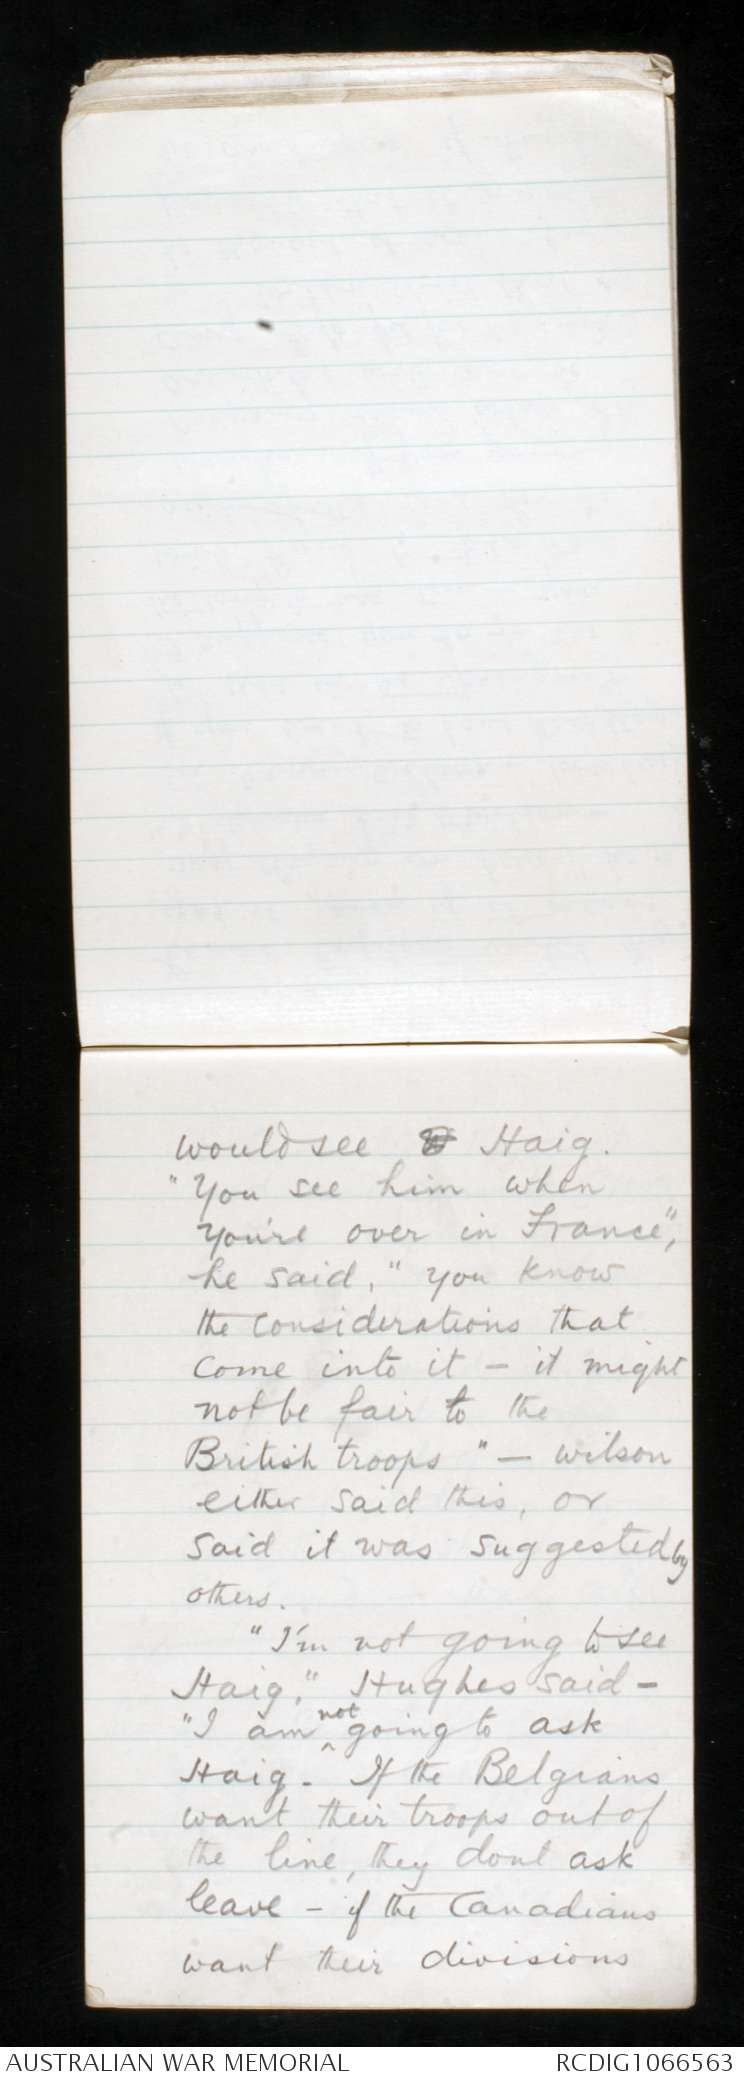 would see Haig.
"You see him when
you're over in France",
he said, "you know
the considerations that
come into it – it might
not be fair to the
British troops" – wilson
either said this, or
said it was suggested by
others.
"I'm not going to see
Haig," Hughes said –
"I am not going to ask
Haig. If the Belgians
want their troops out of
the line, they dont ask
leave – if the Canadians
want their divisions
AUSTRALIAN WAR MEMORIAL
RCDIG1066563